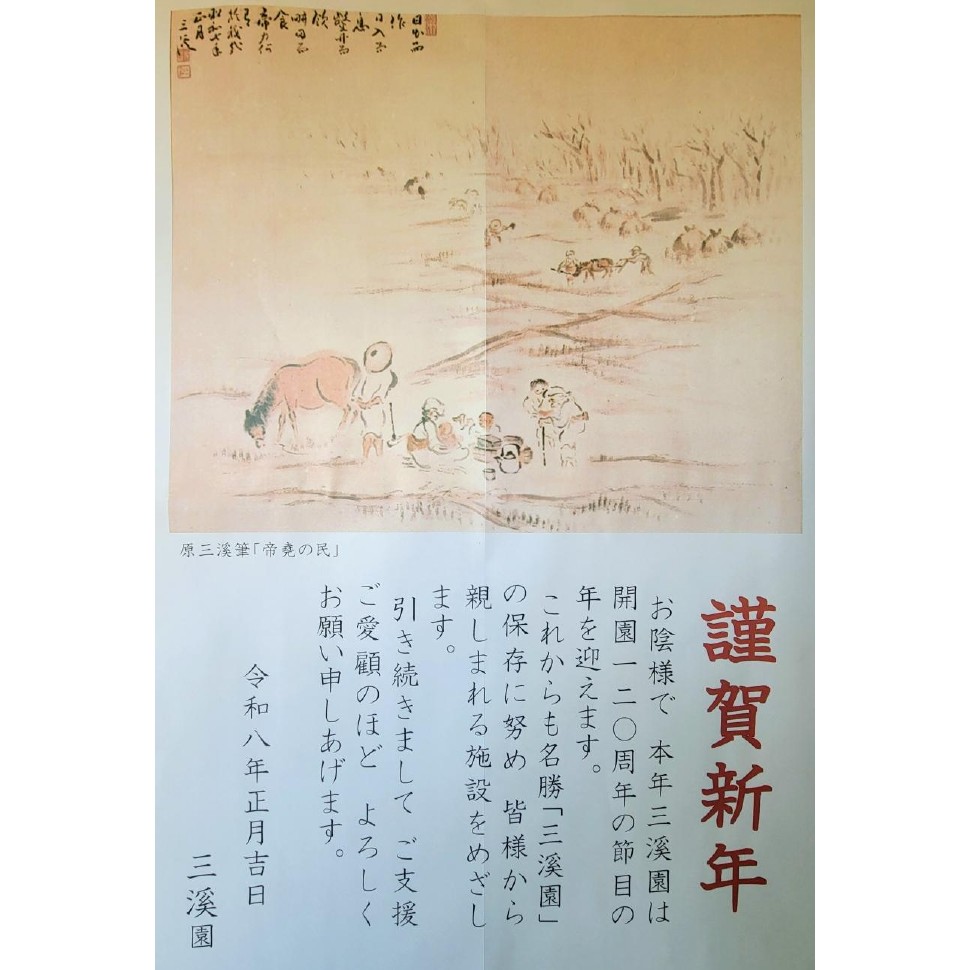 日出而
作
日入而
息
鑿井而
飲
耕田而
食
帝力何
有
於我哉
正月
三溪
原三溪筆「帝堯の民」
謹賀新年
お陰様で 本年三溪園は
開園一二〇周年の節目の
年を迎えます。
これからも名勝「三溪園」
の保存に努め 皆様から
親しまれる施設をめざし
ます。
引き続きまして ご支援
ご愛顧のほど よろしく
お願い申しあげます。
令和八年正月吉日
三溪園